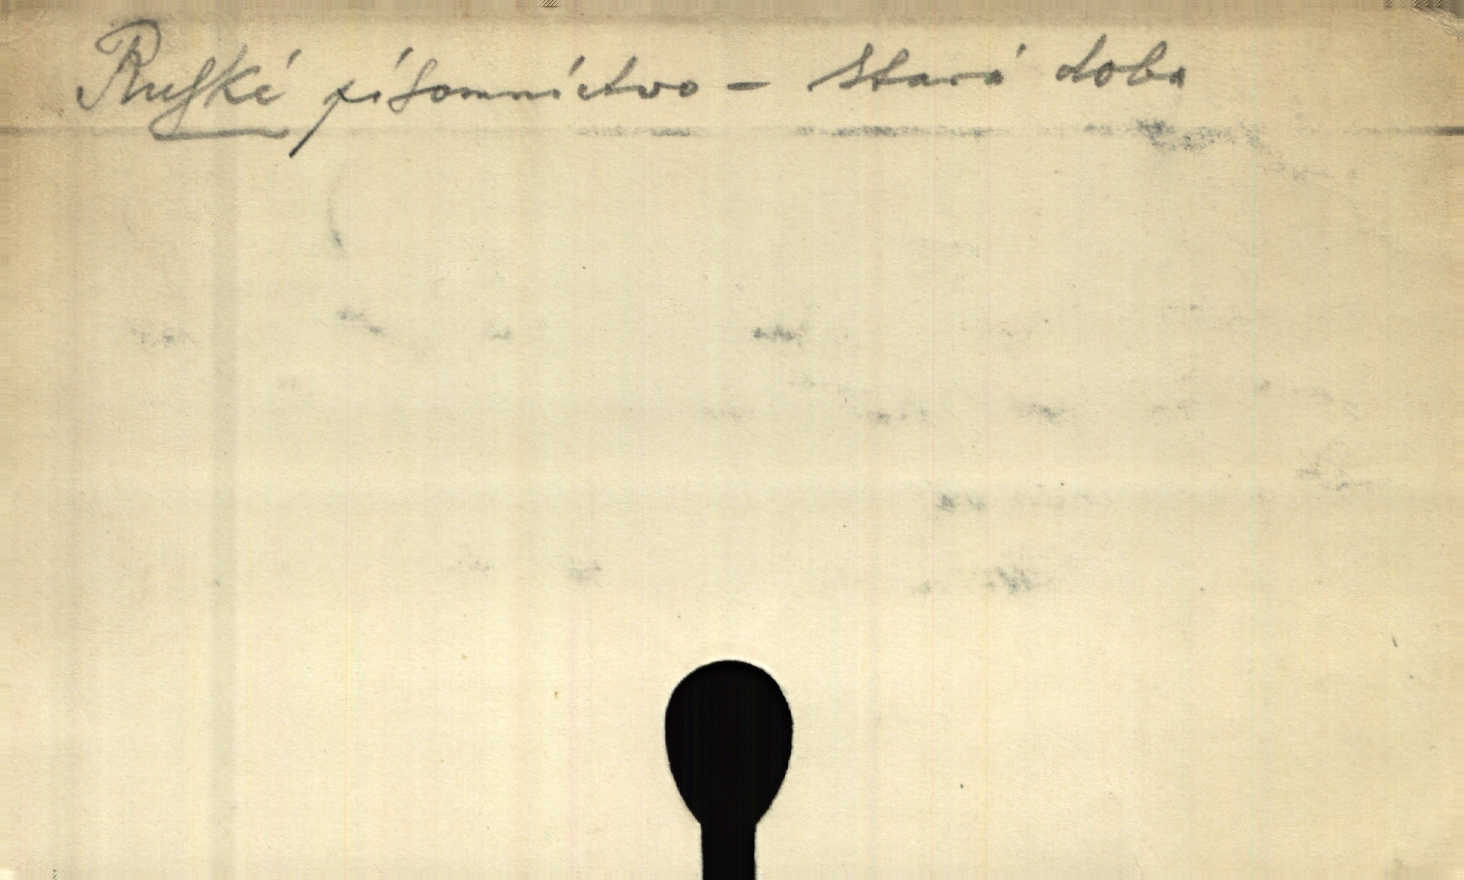 Ruské písomníctvo - stará doba